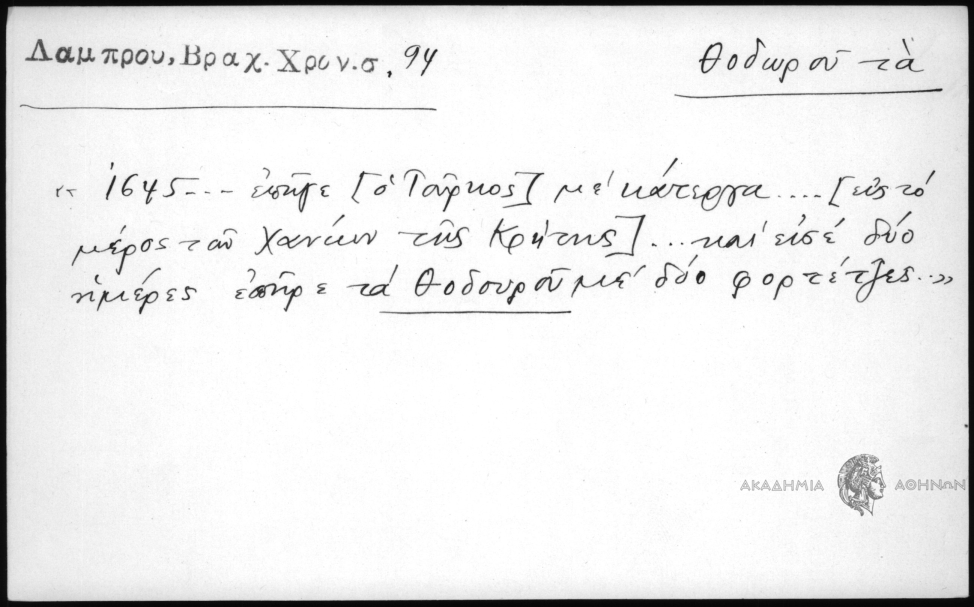 Λαμπρου, Βραχ. Χρον. σ. 94
Θοδωροῦ τὰ
« 1645 --- ἐπῆγε [ὁ Τοῦρκος] μέ κάτεργα .... [εἰς τό
μέρος τῶν Χανίων τῆς Κρήτης] ... καί εἰσέ δύο
ἡμέρες ἐπῆρε τά Θοδουροῦ μέ δύο φορτέτζες..»
ΑΚΑΔΗΜΙΑ ΑΘΗΝΩΝ